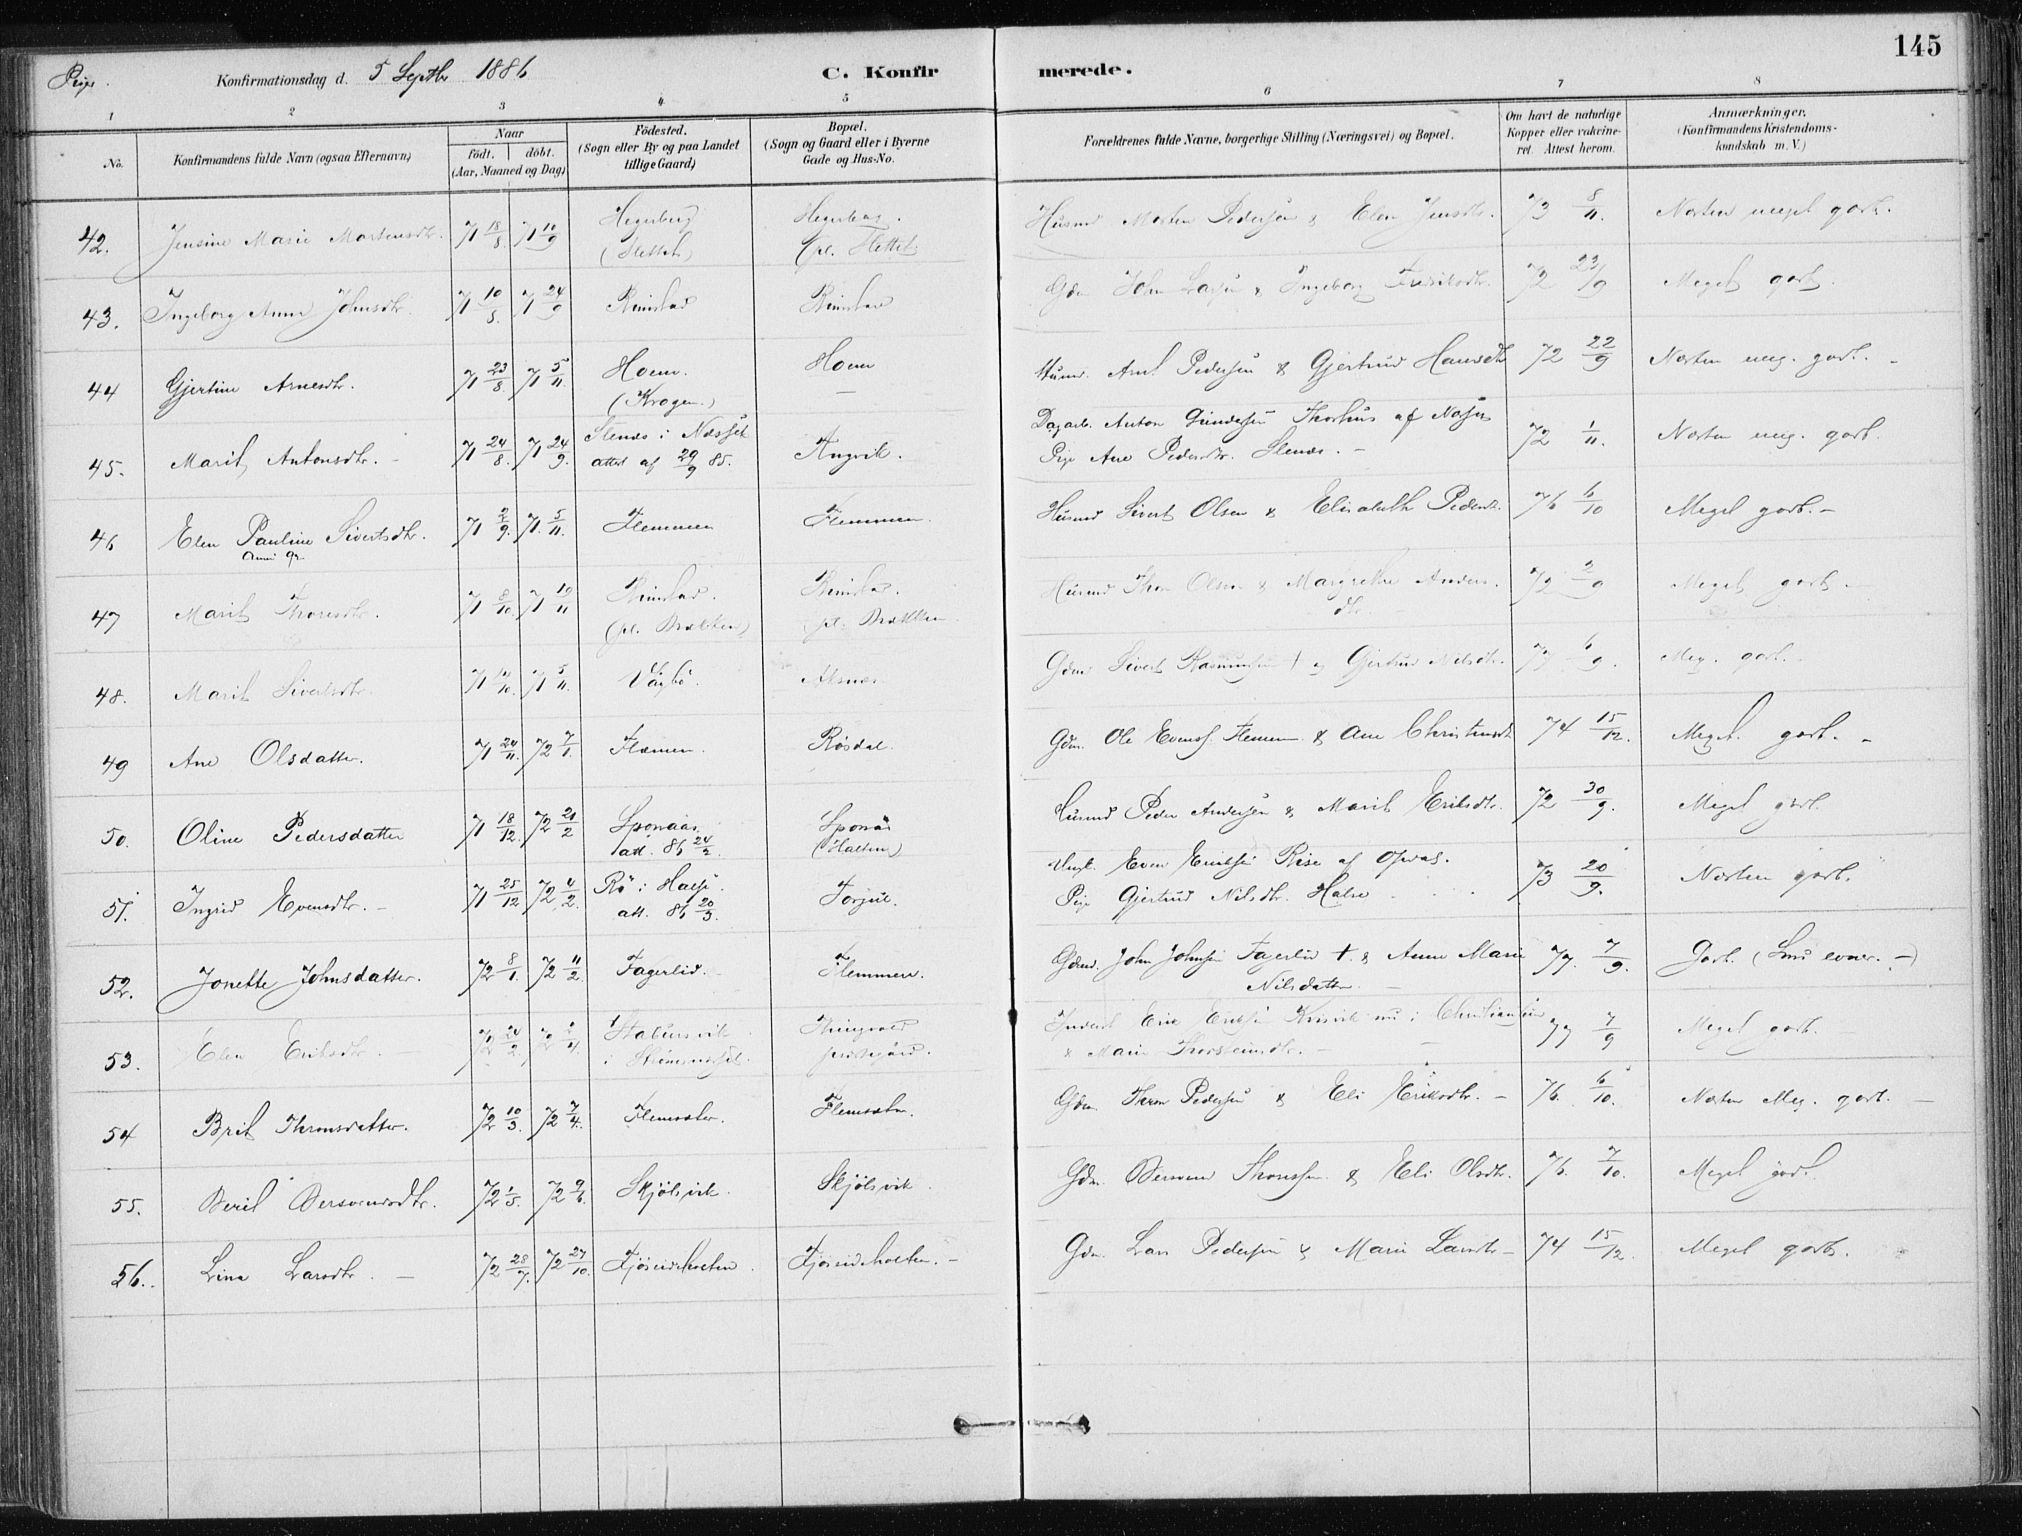 145
Piger. Konfirmationsdag d. 5 Septbr 1886 C. Konfirmerede.
1 2 3 4 5 6 7 8
No. Konfirmandens fulde Navn (ogsaa Efternavn) Naar Födt. döbt. (Aar, Maaned og Dag) Födested. (Sogn eller By og paa Landet tillige Gaard) Bopæl. (Sogn og Gaard eller i Byerne Gade og Hus-No. Forældrenes fulde Navne, borgerlige Stilling (Næringsvei) og Bopæl. Om havt de naturlige Kopper eller vakcineret. Attest herom. Anmærkninger. (Konfirmandens Kristendomskundskab m. V.)
42. Jensine Marie Mortensdtr. 71 18/8. 71 10/9 Hegerberg (Slettet) Hegerberg. (pl. Slettet) Husmd Morten Pedersen & Elen Jensdtr. 73 8/11. Næsten meget godt.
43. Ingeborg Anne Johnsdtr. 71 10/8. 71 24/9 Rimstad Rimstad Gdm John Larsen & Ingeborg Fredriksdtr. 72 23/9 Meget godt.
44 Gjertine Arnesdtr. 71 23/8 71 5/11. Hoem. (Krogen.) Hoem — Husmd. Arnt Pedersen & Gjertrud Hansdtr 72 22/9 Næsten meg. godt. -
45. Marit Antonsdtr. - 71 24/8. 71 24/9. i Nesset attest af 29/9 85. Angvik. Dagarb. Anton Gundersen af Nesset
Pige Ane Pedersdtr. 72 1/11. Næsten meg. godt.
46 Elen Pauline Sivertsdtr. 71 2/9. 71. 5/11. Flemmen Flemmen. Husmd Sivert Olsen & Elisabeth Pedersdtr. 76 6/10 Meget godt. -
47 Marit Thoresdtr. 71 8/10. 71 19/11 Rimstad. (pl. Brækken) Rimstad. pl. Brækken. Husmd Thore Olsen & Margrethe Andersdtr. 72 2/9 Meget godt.
48. Marit Sivertsdtr. 71 71 5/11. Vågbö. Aksnes Gdm Sivert Rasmussen † og Gjertrud Nilsdtr. 77 6/9. Meg. godt.
49 Ane Olsdatter. 71 24/11. 72 7/1. Flemmen. Rösdal. Gdm. Ole Evenss. Flemmen & Ane Christensdtr. 74 15/12. Meget godt. -
50. Oline Pedersdatter 71 18/12. 72 21/2 Sponaas. att. 86 24/2. Sponås (Halten) Husmd Peder Andersen & Marit Eriksdtr. 72 30/9. Meget godt.
51. Ingrid Evensdtr. - 71 25/12 72 4/2. Rö i Halse. att. 86 20/3. Torjul. Ungk. Even Eriksen Rise af Opdal.
Pige Gjertrud Nilsdtr. Halse 73 20/9. Næsten godt.
52. Jonette Johnsdatter. 72 8/1. 72 11/2. Fagerlid. Flemmen. Gdmd. John Johnsen Fagerlid † & Anne Marie Nilsdatter. 77. 7/9. Godt. (Små evner. -)
53. Elen Eriksdtr. 72 24/2. 72 2/4. Stabursvik i Strömsnesset. Thingvold prestegård. Inderst Erik Eriksen nu i Christiansund
& Marie Thorsteinsdtr. - 77 7/9 Meget godt.
54 Brit Thronsdatter. 72 10/3. 72 7/4. Flemsæter. Flemsæter. Gdm. Thron Pedersen & Eli Eriksdtr. - 76. 6/10. Næsten Meg. godt. -
55. Berit Bersvendsdtr. 72 1/5. 72 9/6. Skjölsvik. Skjölsvik. Gdm. Bersvend Thronssen & Eli Olsdtr. 76. 7/10. Meget godt.
56. Lina Larsdtr. — 72 28/7. 72 27/10. Fjöseidsholten. Fjöseidsholten. - Gdm. Lars Pedersen & Marie Larsdtr - 74 15/12. Meget godt.